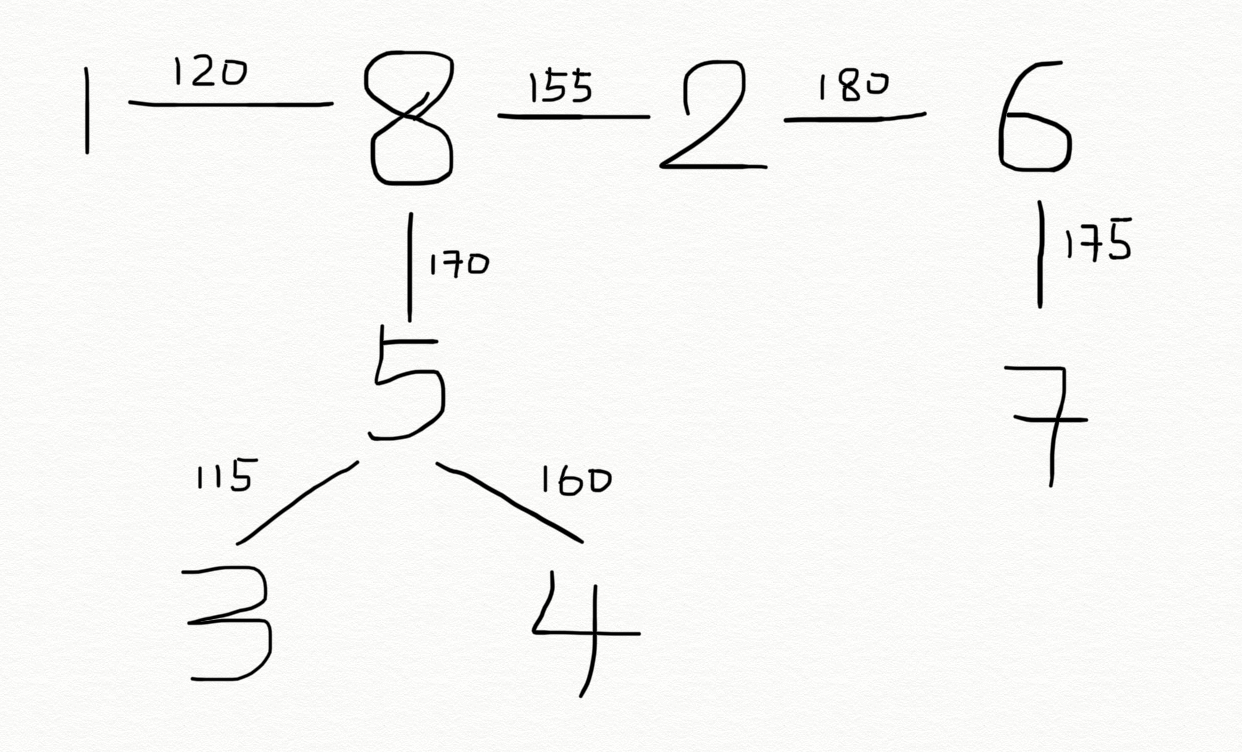 1 120 8 155 2 180 6
170 175
5 7
115 160
3 4